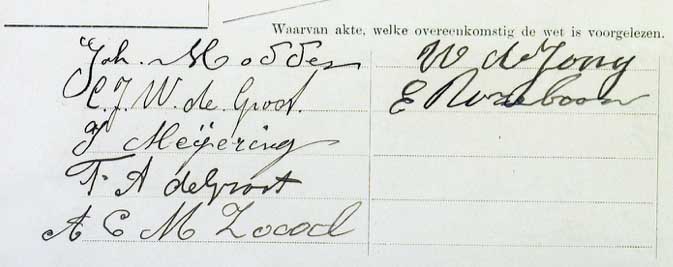 Waarvan akte, welke overeenkomstig de wet is voorgelezen.
Joh. Modder
C. J. W. de Groot.
J Meijering
F. A de Groot
A C M Zocod
W de Jong
E Rozeboom